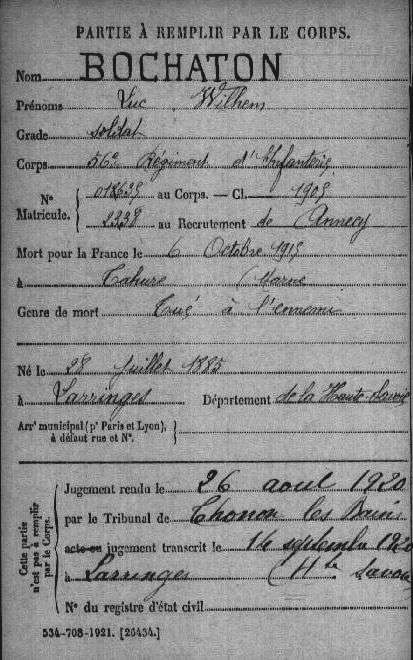 PARTIE À REMPLIR PAR LE CORPS.
Nom BOCHATON
Prénoms Luc Wilhem
Grade soldat
Corps 56e Régiment d'Infanterie
N° Matricule. 018635 au Corps. — Cl. 1905
2238 au Recrutement de Annecy
Mort pour la France le 6 Octobre 1915
à Tahure Marne
Genre de mort Tué à l'ennemi
Né le 28 Juillet 1885
à Larringes Département de la Haute-Savoie
Arr' municipal (p' Paris et Lyon), à défaut rue et N°.
Cette partie n'est pas à remplir par le Corps.
Jugement rendu le 26 aout 1920
par le Tribunal de Thonon les Bains
acte ou jugement transcrit le 14 septembre 1920
à Larringes (Hte Savoie
N° du registre d'état civil
534-708-1921. [26434.]